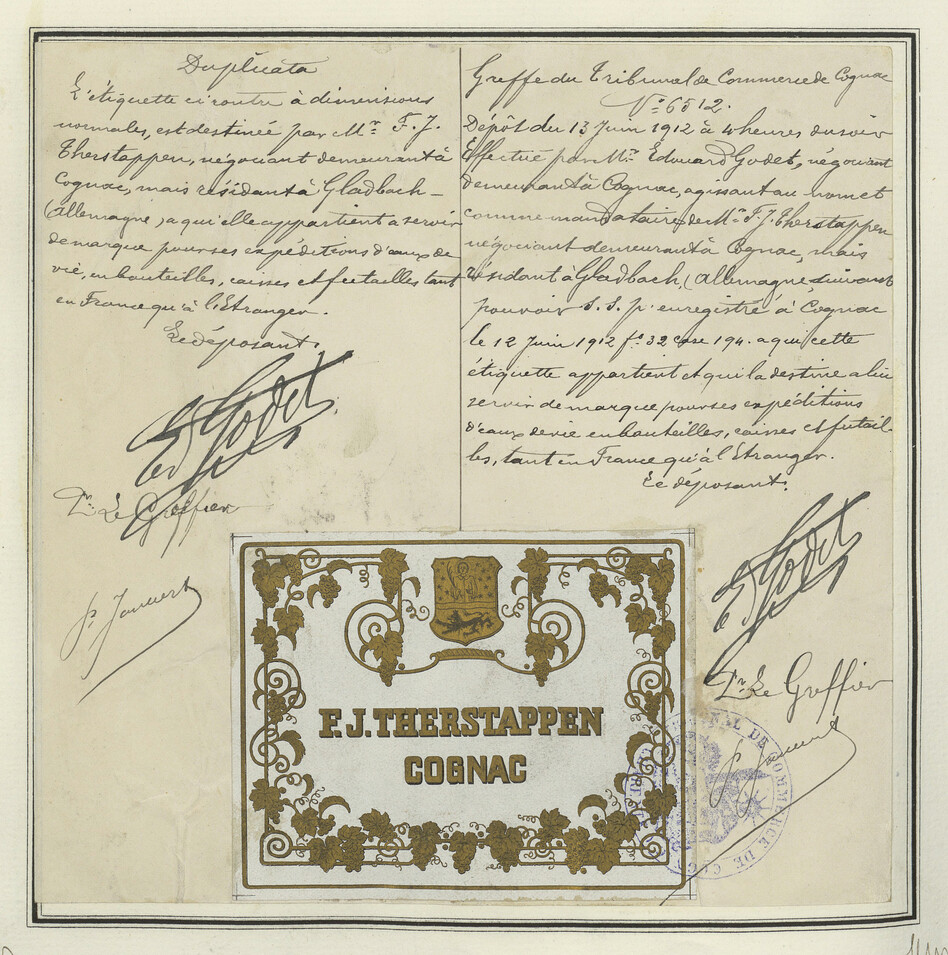 Duplicata
L'étiquette ci contre à dimensions
normales, est destinée par Mr. F. J.
Therstappen, négociant demeurant à
Cognac, mais résidant à Gladbach –
(Allemagne) a qui elle appartient a servir
de marque pour ses expéditions d'eaux de
vie, en bouteilles, caisses et futailles tant
en France qu'à l'Etranger.
Le déposant.
Ed Godet
Pr. Le Greffier
P. Jouvert
Greffe du Tribunal de Commerce de Cognac
No. 6512.
Dépôt du 13 Juin 1912 à 4 heures du soir
Effectué par Mr. Edouard Godet, négociant
demeurant à Cognac, agissant au nom et
comme mandataire de Mr. F. J. Therstappen
négociant demeurant à Cognac, mais
résidant à Gladbach (Allemagne, suivant
pouvoir s. s. p. enregistré à Cognac
le 12 Juin 1912 fo. 32 case 194. a qui cette
étiquette appartient et qui la destine a lui
servir de marque pour ses expéditions
d'eaux de vie en bouteilles, caisses et futail-
les, tant en France qu'à l'Etranger.
Le déposant.
Ed Godet
Pr. Le Greffier
P. Jouvert
F. J. THERSTAPPEN
COGNAC
TRIBUNAL DE COMMERCE DE COGNAC